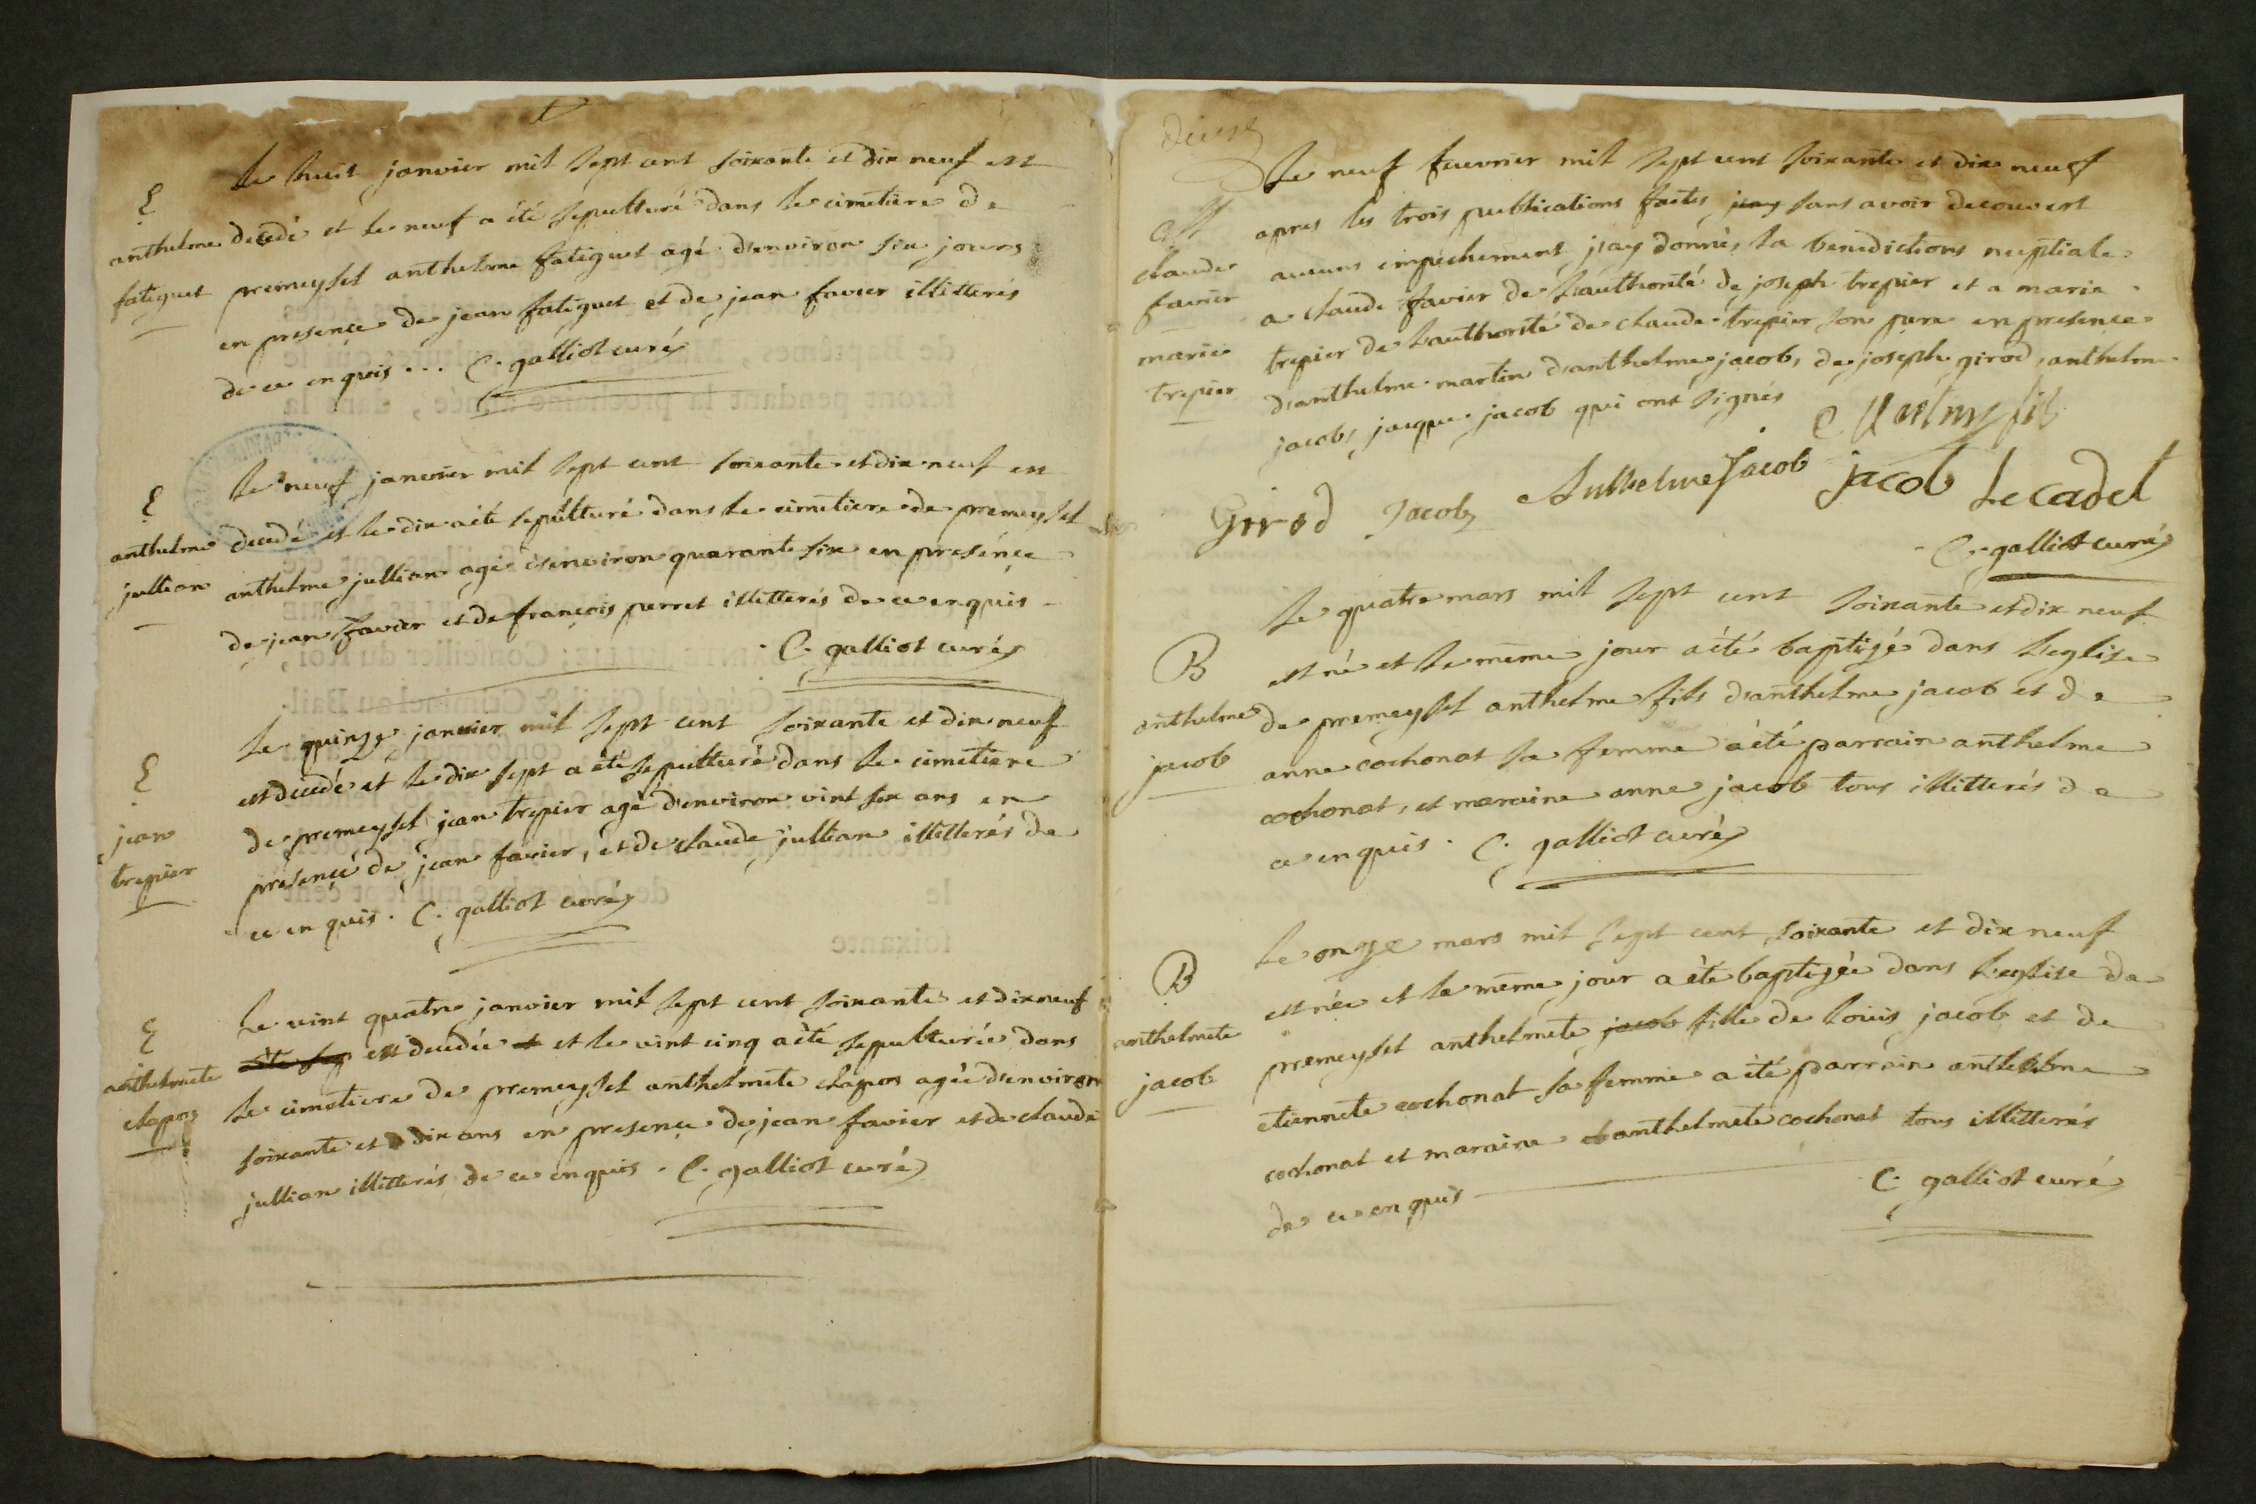 Le huit janvier mil sept cent soixante et dix neuf est
E
anthelme
fatiguet
decedé et le neuf a été sepulturé dans le cimetiere de
premeysel anthelme fatiguet agé d'environ six jours
en presence de jean fatiguet et de jean favier illitterés
de ce enquis... C. galliot curé
Le neuf janvier mil sept cent soixante et dix neuf est
E
anthelme
jullian
decedé et le dix a été sepulturé dans le cimetiere de premeysel
anthelme jullian agé d'environ quarante six en presence
de jean favier et de françois perret illitterés de ce enquis
C. galliot curé
Le quinze janvier mil sept cent soixante et dix neuf
E
jean
trepier
est decedé et le dix sept a été sepulturé dans le cimetiere
de premeysel jean trepier agé d'environ vint six ans en
presence de jean favier, et de claude jullian illitterés de
ce enquis. C. galliot curé
Le vint quatre janvier mil sept cent soixante et dix neuf
E
anthelmete
chapon
est decedée et et le vint cinq a été sepulturée dans
le cimetiere de premeysel anthelmete chapon agée d'environ
soixante et dix ans en presence de jean favier et de claude
jullian illitterés de ce enquis. C. galliot curé
deux
Le neuf fuevrier mil sept cent soixante et dix neuf
M
claude
favier
marie
trepier
apres les trois publications faites jay sans avoir decouvert
aucuns empechement j'ay donnés la benedictions nuptiale
a claude favier de l'authorité de joseph trepier et a marie
trepier de l'authorité de claude trepier son pere en presence
d'anthelme martin d'anthelme jacob, de joseph girod, anthelme
jacob, jacque jacob qui ont signés
Girod Jacob Anthelme Jacob jacob Le cadet
C. galliot curé
Le quatre mars mil sept cent soixante et dix neuf
B
anthelme
jacob
est né et le même jour a été baptisé dans l'eglise
de premeysel anthelme fils d'anthelme jacob et de
anne cochonat sa femme a été parrain anthelme
cochonat, et maraine anne jacob tous illitterés de
ce enquis. C. galliot curé
Le onze mars mil sept cent soixante et dix neuf
B
anthelmete
jacob
est née et le même jour a été baptisée dans l'eglise de
premeysel anthelmete jacob fille de louis jacob et de
etiennete cochonat sa femme a été parrain anthelme
cochonat et maraine anthelmete cochonat tous illitterés
de ce enquis C. galliot curé